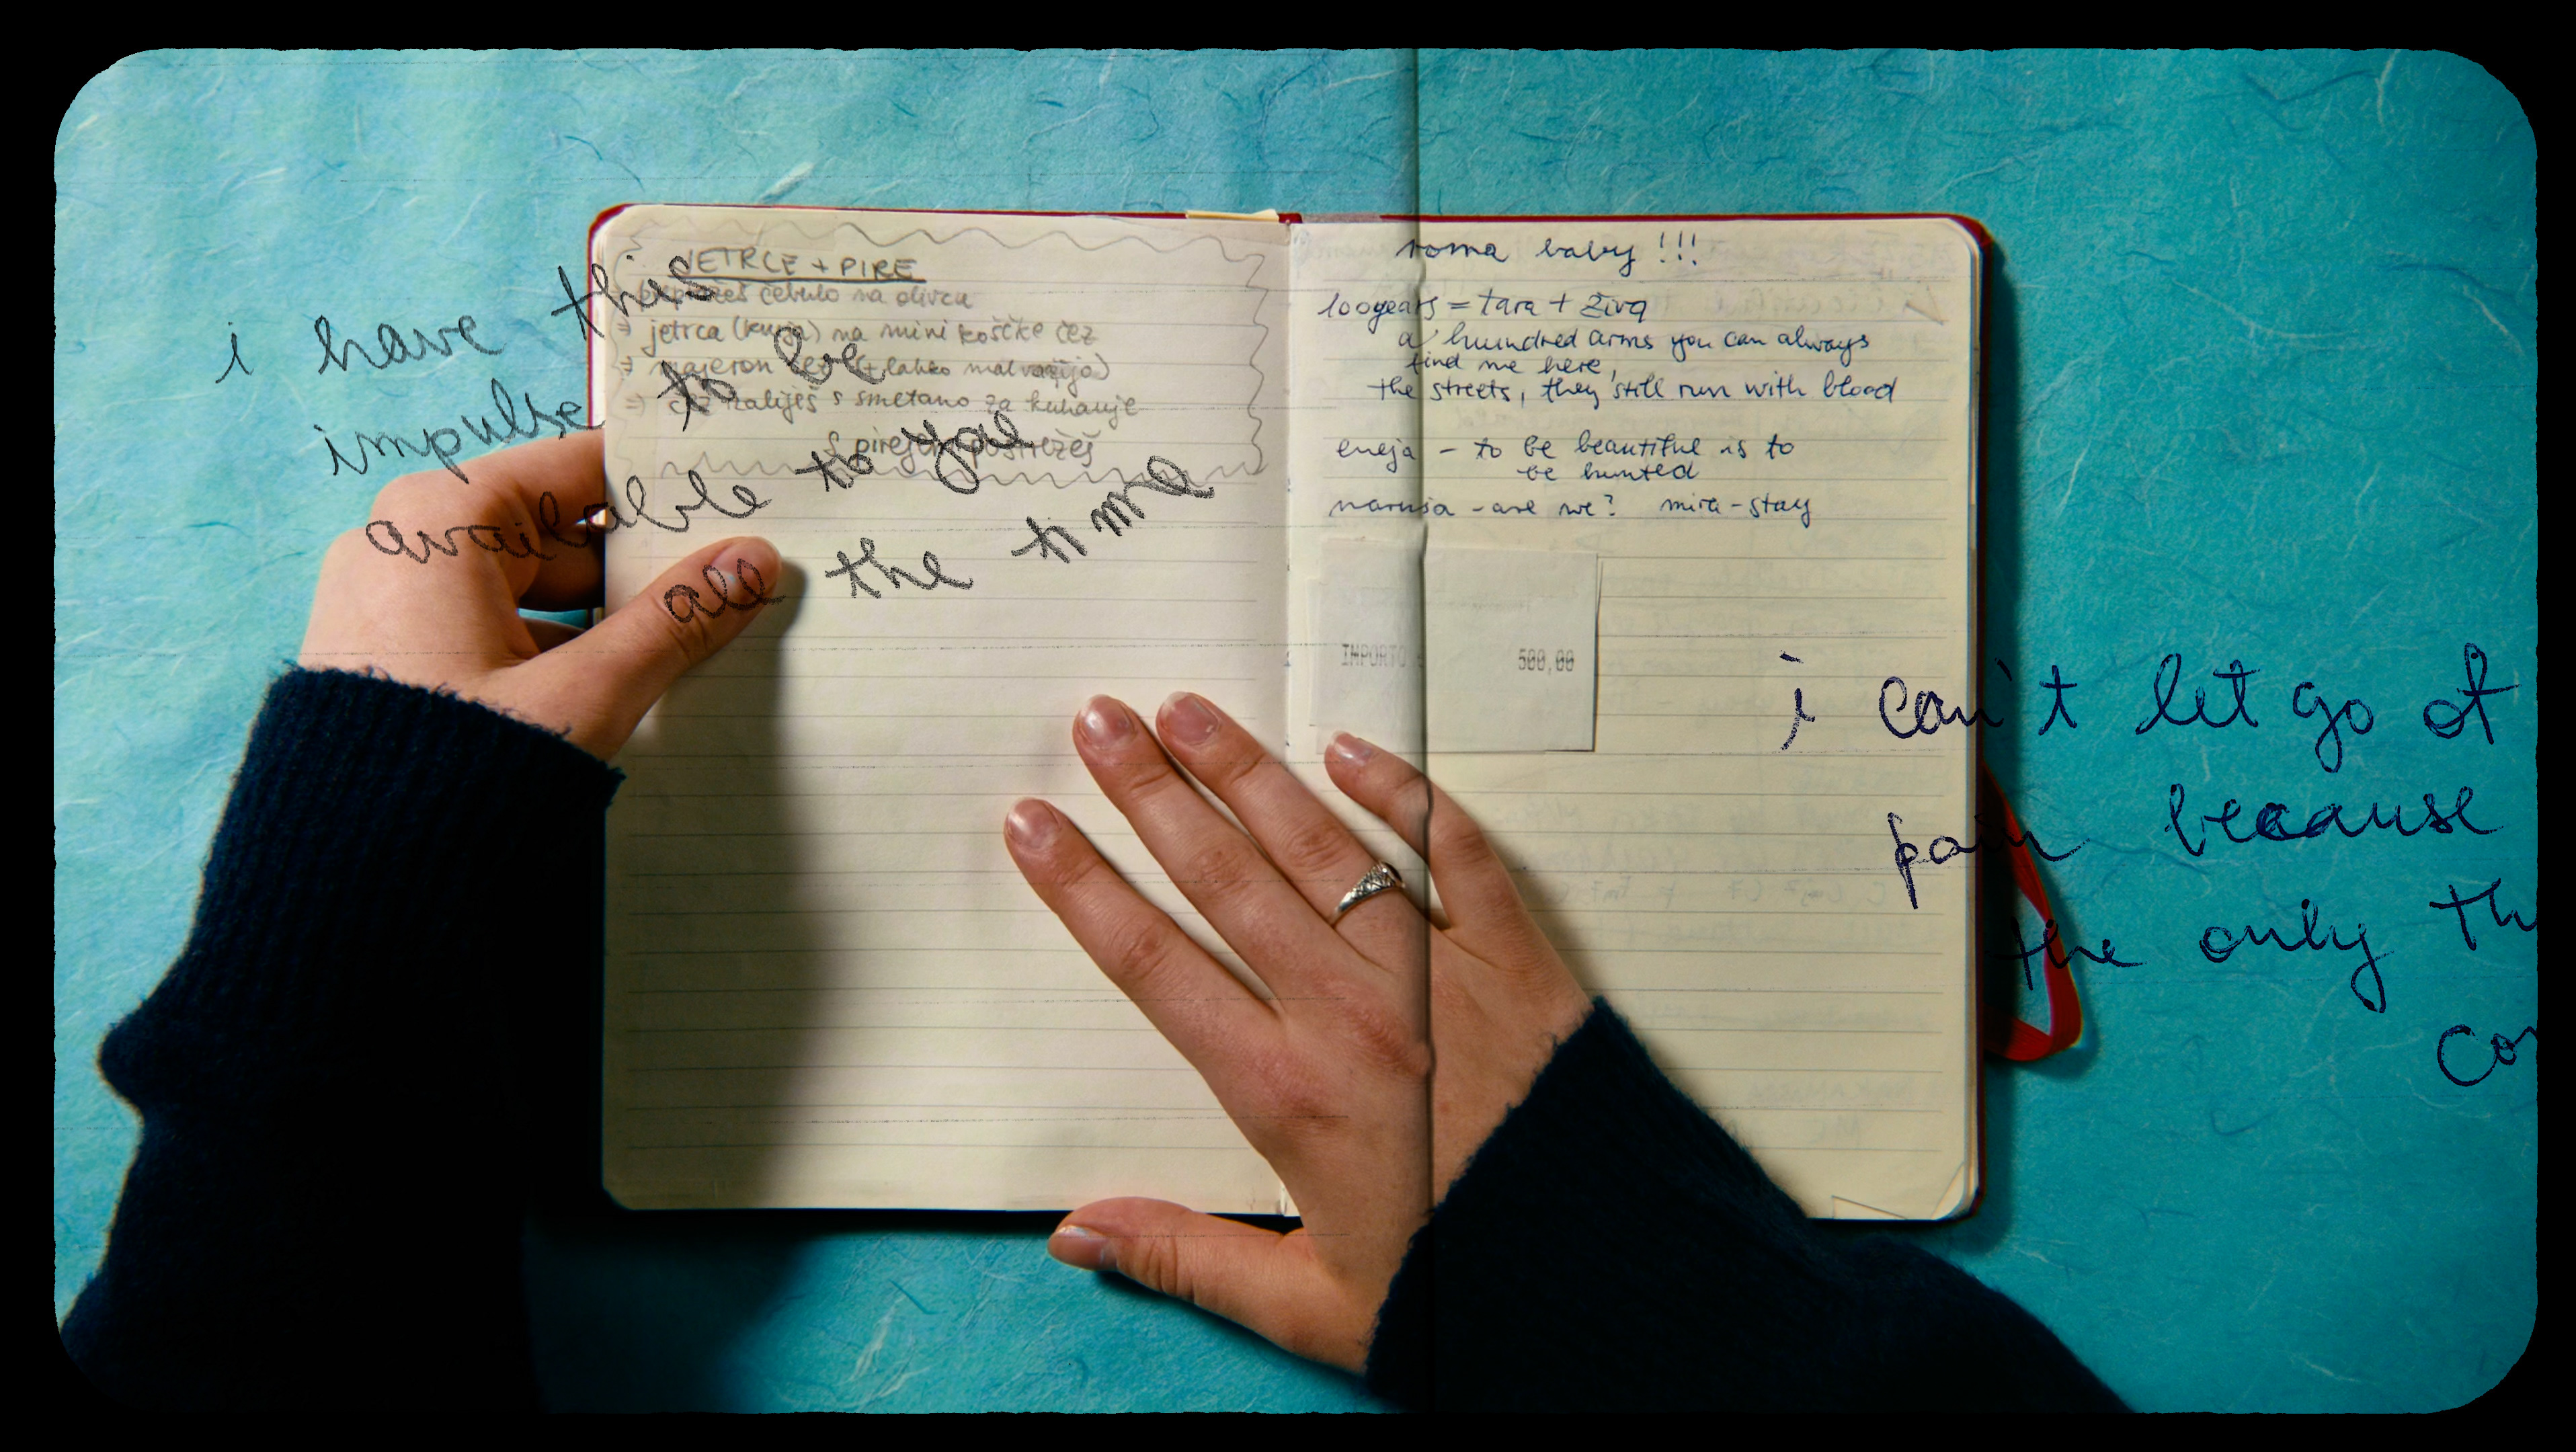 i have this
impulse to be
available to you
all the time
JETRCE + PIRE
čebulo na olivcu
⇒ jetrca (kurja) na mini koščke čez
⇒ majeron čez (+ lahko malvazija)
⇒ čez zaliješ s smetano za kuhanje
s pirejem postrežeš
roma baby !!!
100gears = tara + živa
a hundred arms you can always
find me here,
the streets, they still run with blood
eneja - to be beautiful is to
be hunted
marusa - are we? mira - stay
IMPORTO 500,00
i can't let go of
pain because
the only th
con